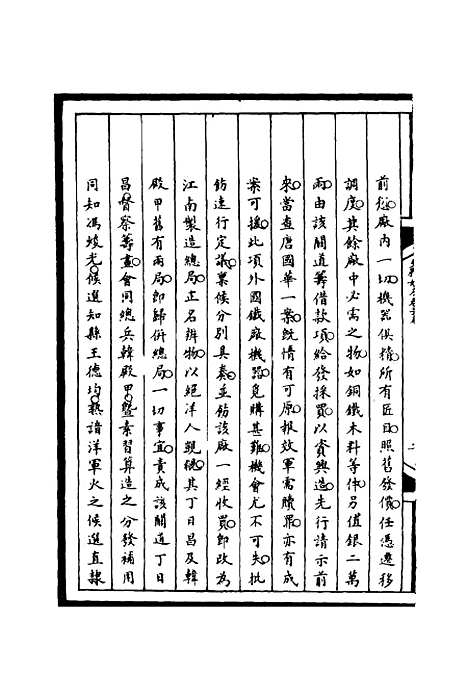 前廠內一切機器俱精所有匠目照舊發價任憑遷移
調度其餘廠中必需之物如銅鐵木料等件另值銀二萬
兩由該關道籌借款項給發採買以資興造先行請示前
來當查唐國華一案既情有可原報效軍需贖罪亦有成
案可援此項外國鐵廠機器覓購甚難機會尤不可失批
飭速行定議稟候分別具奏並飭該廠一經收買即改為
江南製造總局正名辨物以絕洋人覬覦其丁日昌及韓
殿甲舊有兩局即歸併總局一切事宜責成該關道丁日
昌督察籌畫會同總兵韓殿甲暨素習算造之分發補用
同知馮焌光候選知縣王德均熟諳洋軍火之候選直隸